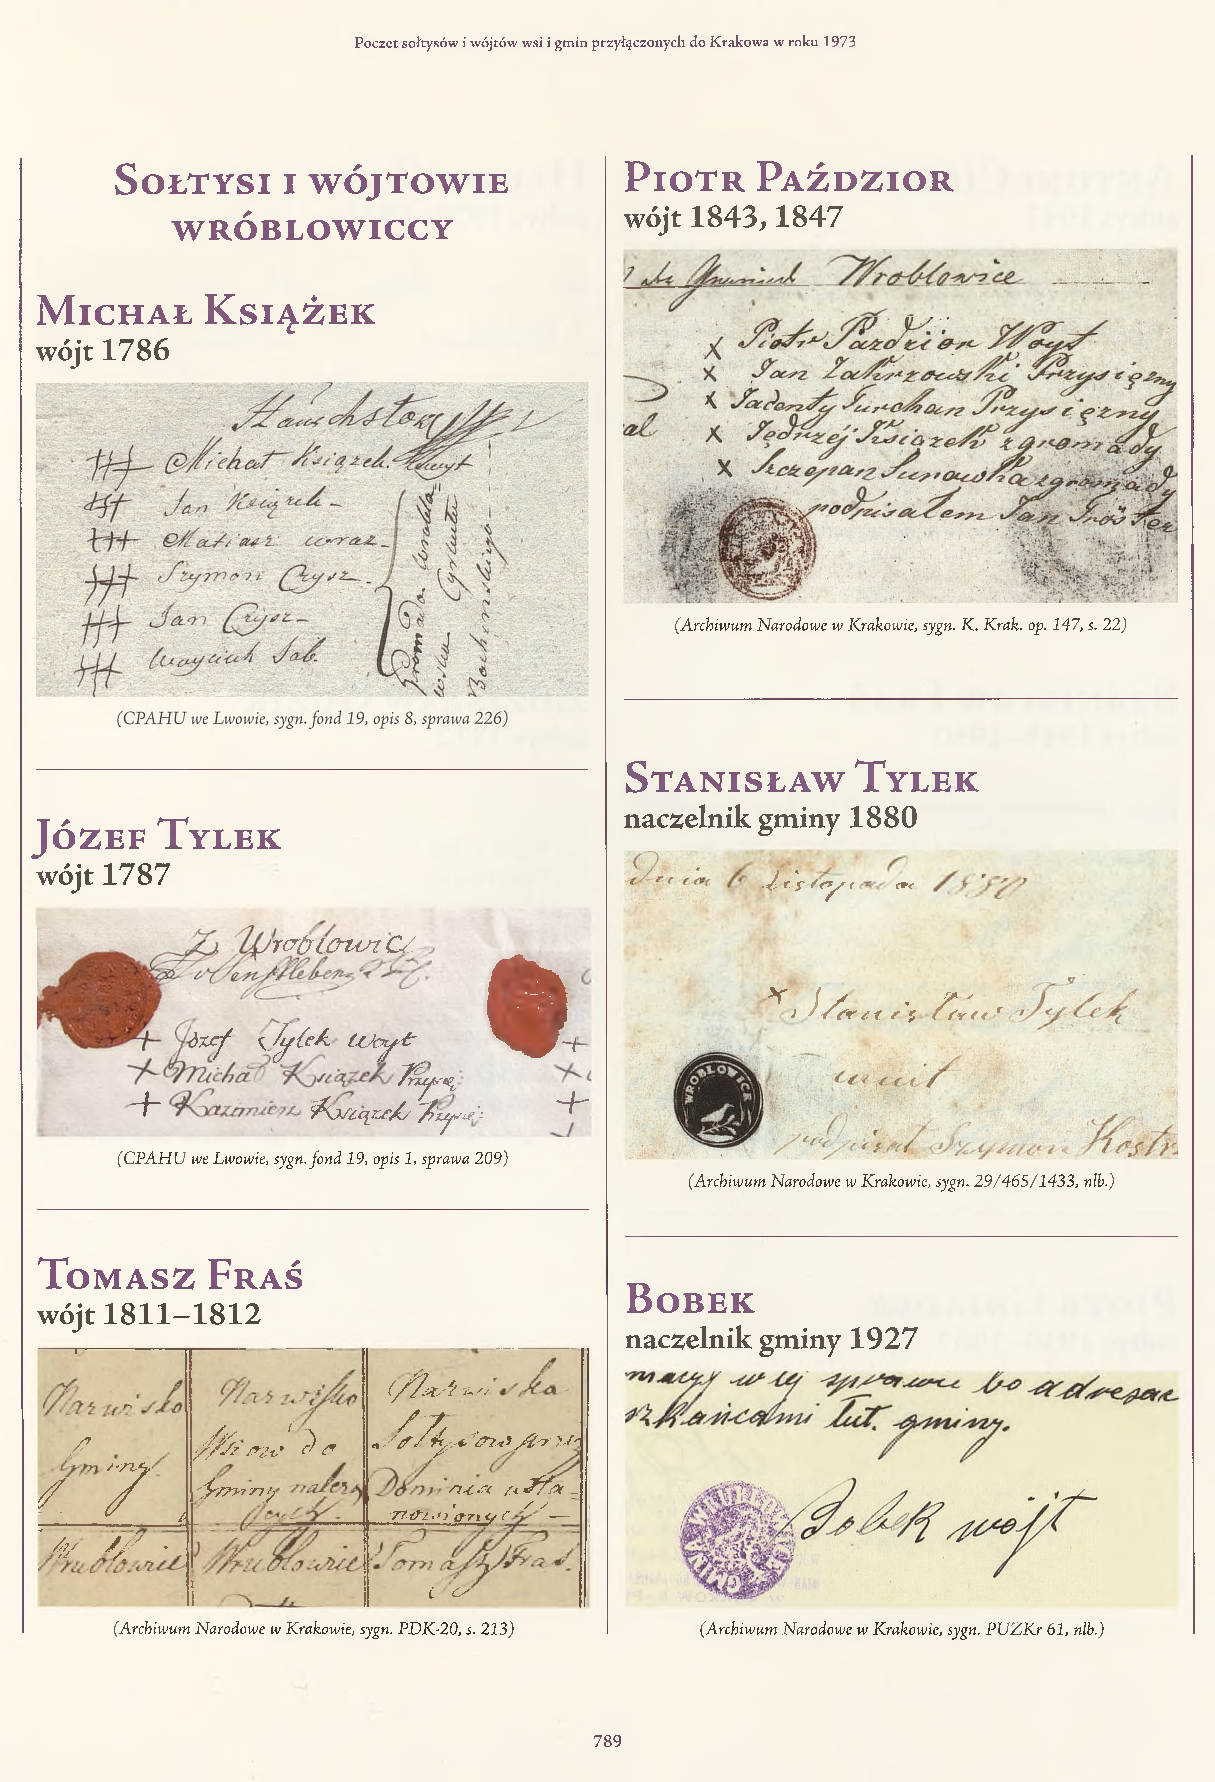 Poczet sołtysów i wójtów wsi i gmin przyłączonych do Krakowa w roku 1973
Sołtysi i wójtowie
wróblowiccy
Michał Książek
wójt 1786
Michał Książek
Jan Książek
Szymon
Jan
Gromada
(CPAHU we Lwowie, sygn. fond 19, opis 8, sprawa 226)
Józef Tylek
wójt 1787
Z Wroblowic
+ Jozef Tylek woyt
+ Michał Książek Przysię:
+ Kazimierz Książek Przysię:
(CPAHU we Lwowie, sygn. fond 19, opis 1, sprawa 209)
Tomasz Fraś
wójt 1811–1812
Narwisko
Gminy
Narwisko
Wsiow do
Gminy należą
cych
Narwiska
Sołtysow przez
Dominia usta-
nowionych —
Wrublowice
Wrublowice
Tomasz Fras.
(Archiwum Narodowe w Krakowie, sygn. PDK-20, s. 213)
Piotr Paździor
wójt 1843, 1847
Wroblowice
x Piotr Pazdzior Woyt
x Jan Zakrzowski Przysiężny
x Jacenty Turchan Przysiężny
x Jędrzéj Książek z gromady
x Szczepan Sunowka z gromady
podpisałem Jan
(Archiwum Narodowe w Krakowie, sygn. K. Krak. op. 147, s. 22)
Stanisław Tylek
naczelnik gminy 1880
Dnia 6 Listopada 1880
x Stanisław Tylek
wuit
WROBLOWICE
podpisał Szymon Kostr
(Archiwum Narodowe w Krakowie, sygn. 29/465/1433, nlb.)
Bobek
naczelnik gminy 1927
w tej sprawie bo adresac
szkańcami tut. gminy.
GMINA
Bobek wójt
(Archiwum Narodowe w Krakowie, sygn. PUZKr 61, nlb.)
789